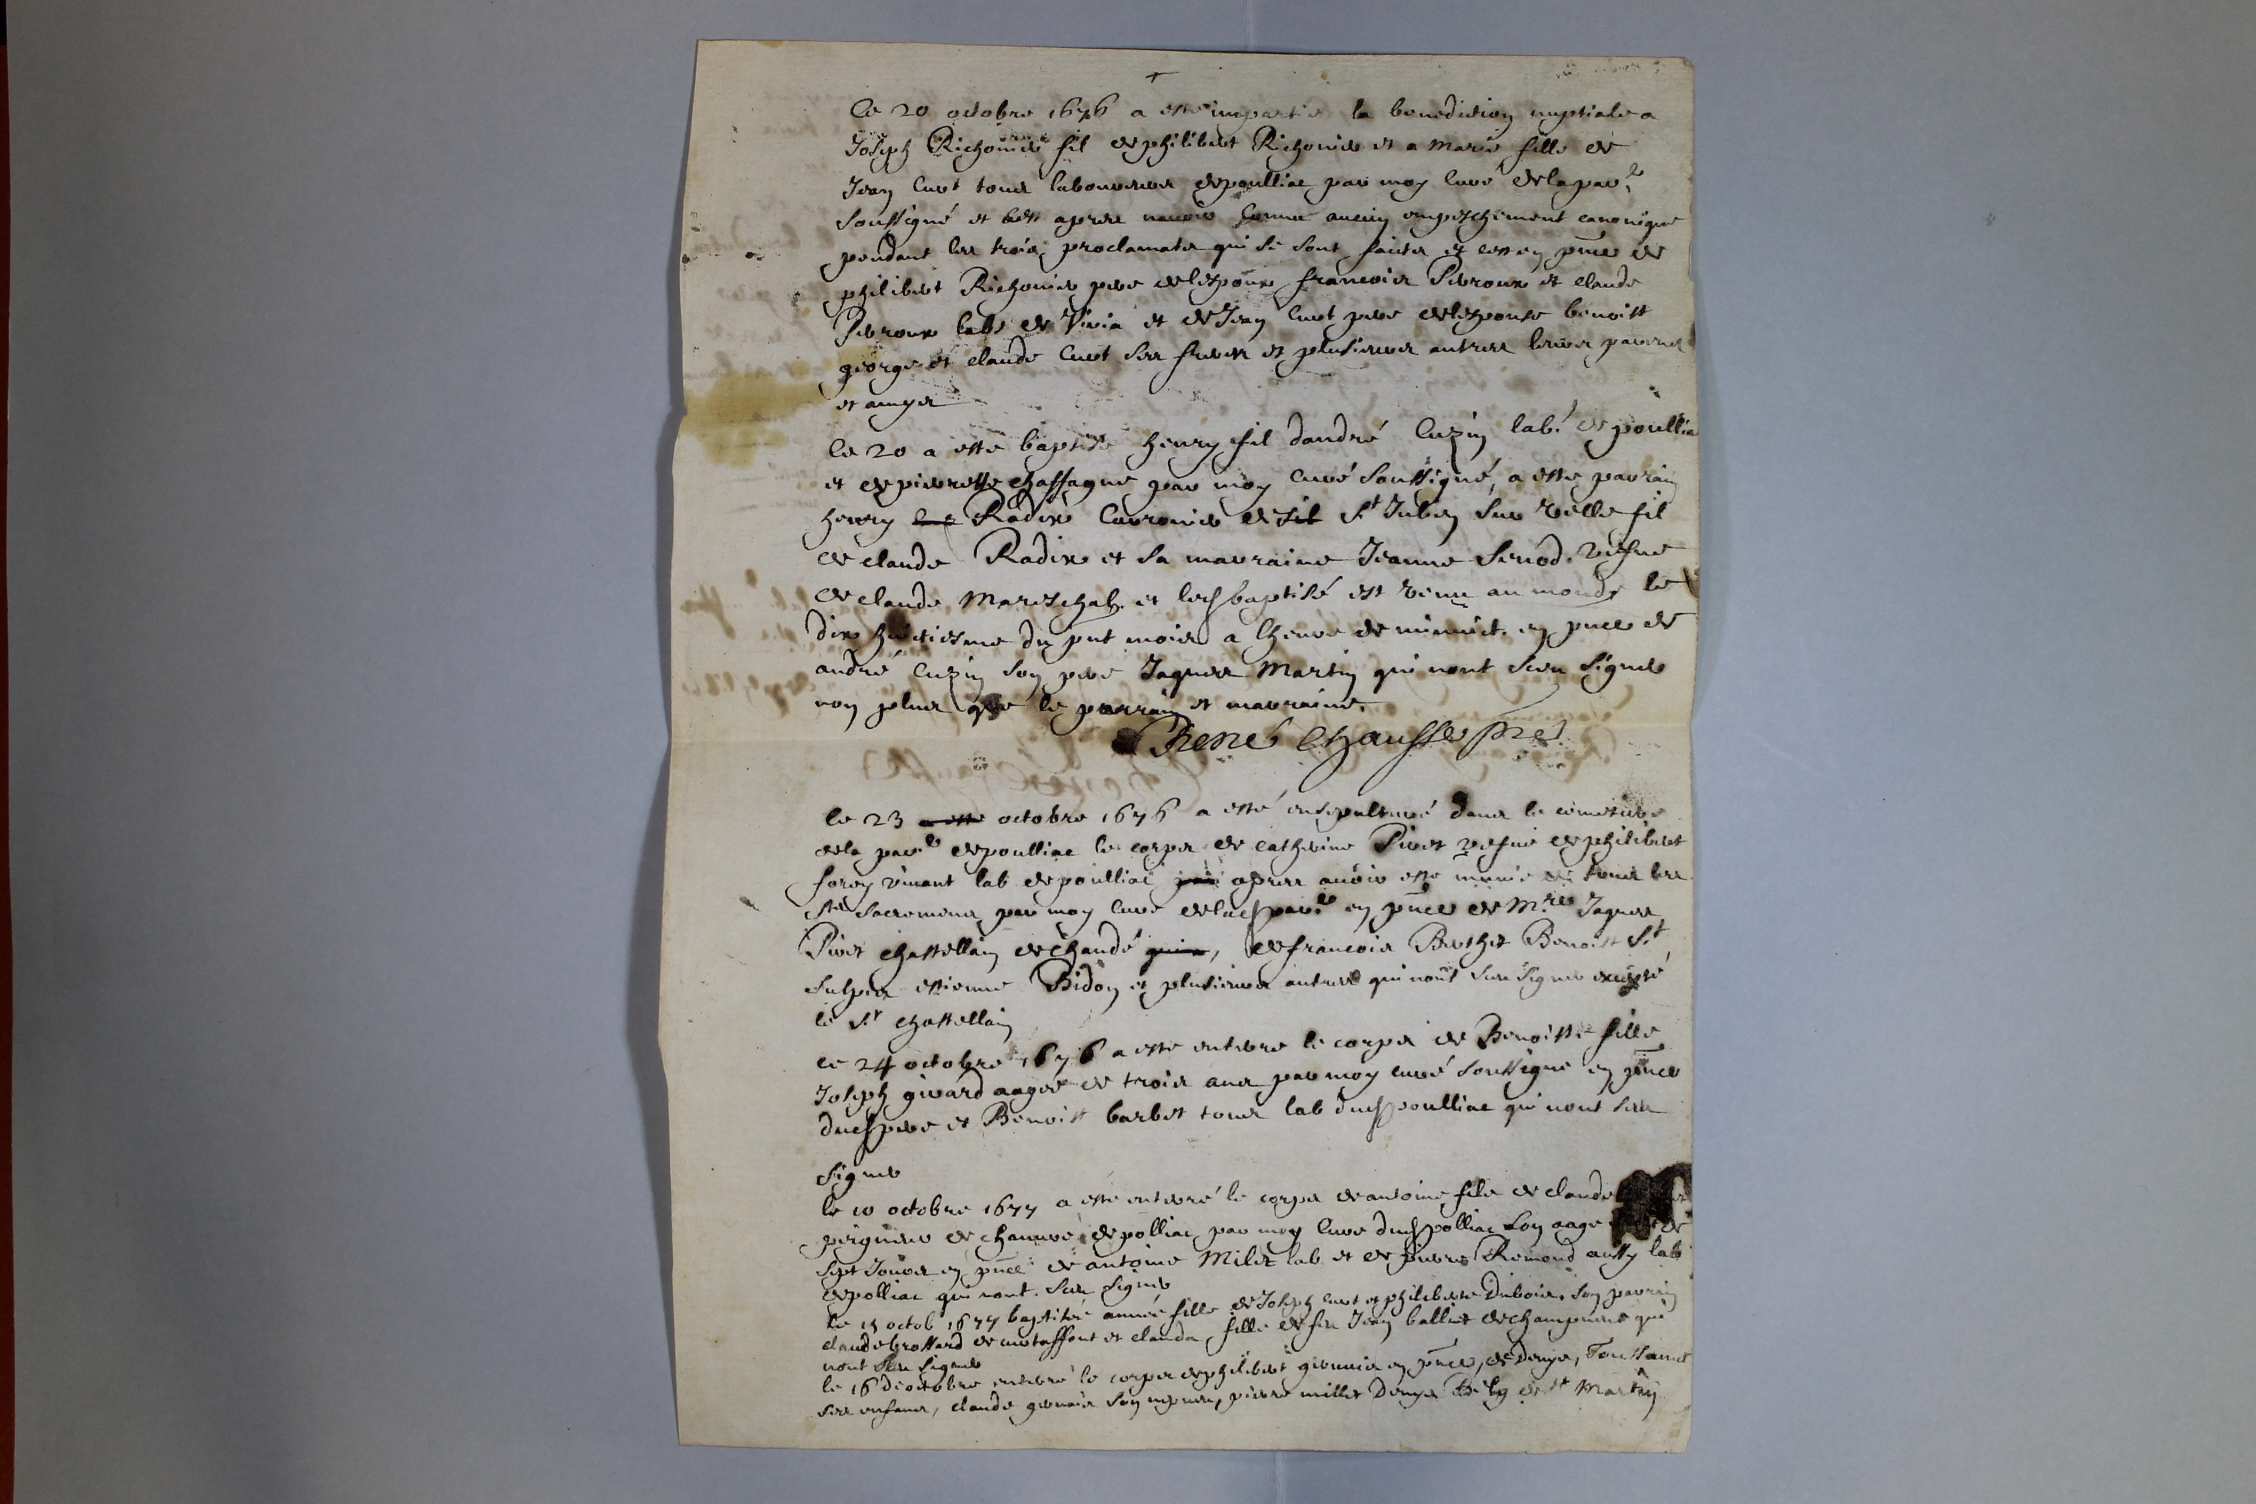 Le 20 octobre 1676 a esté impartie la benediction nuptiale a
Joseph Richonier fil de philibert Richonier et a Marie fille de
Jean Curt tous laboureurs de poulliac par moy Curé de la par.e
soussigné et c'est apres navoir connu aucun empeschement canonique
pendant les trois proclamates qui se sont faites et cest en pnce de
philibert Richonier pere de lespoux francois Perroux et claude
Perroux labs de Viria et de Jean Curt pere de lespouse benoist
george et claude Curt ses freres et plusieurs autres leurs parens
et amys
le 20 a esté baptisé henry fil dandré Cuzin lab.r de poullia
et de pierrette chassagne par moy curé soussigné, a esté parrain
henry Radix Couronier de St Julien sur velle fil
de claude Radix et sa marraine Jeanne Senod vefue
de claude Mareschal et led baptisé est venu au monde le
dix huictiesme du pnt mois a lheure de minuict en pnce de
andré Cuzin son pere Jaques Martin qui nont sceu signer
non plus que le parrain et marraine.
René Chausse pre
le 23 octobre 1676 a esté ensepulturé dans le cimetiere
de la par.e de poulliac le corps de catherine Piret vefue de philibert
forey vivant lab de poulliac apres auoir esté munie de tous les
sts sacremens par moy Curé de lad par.e en pnce de M.re Jaques
Piret chastellain de chandé, de francois Berthet Benoist St
Sulpis estienne Bidon et plusieurs autres qui nont sceu signer excepté
le Sr chastellain
ce 24 octobre 1676 a esté enterre le corps de Benoiste fille
Joseph girard aagée de trois ans par moy curé soussigné en pnce
dud pere et Benoist barbet tous lab dud poulliac qui nont sceu
signer
le 10 octobre 1677 a esté enterré le corps de antoine fils de claude
peigneur de chanure de polliac par moy Curé dud polliac son aage de
sept Jours en pnce de antoine Milet lab et de pierre Remond aussy lab
de polliac qui nont sceu signer
le 15 octob 1677 baptisée année fille de Joseph Curt et philiberte Dubois. son parrain
claude brossard de cutaffont et clauda fille de feu Jean balliet de champ qui
nont sceu signer
le 16 de octobre enterré le corps de philibert en pnce, de Denys, Toussainct
ses enfans, claude son nepueu, pierre millet Denys de st Martin